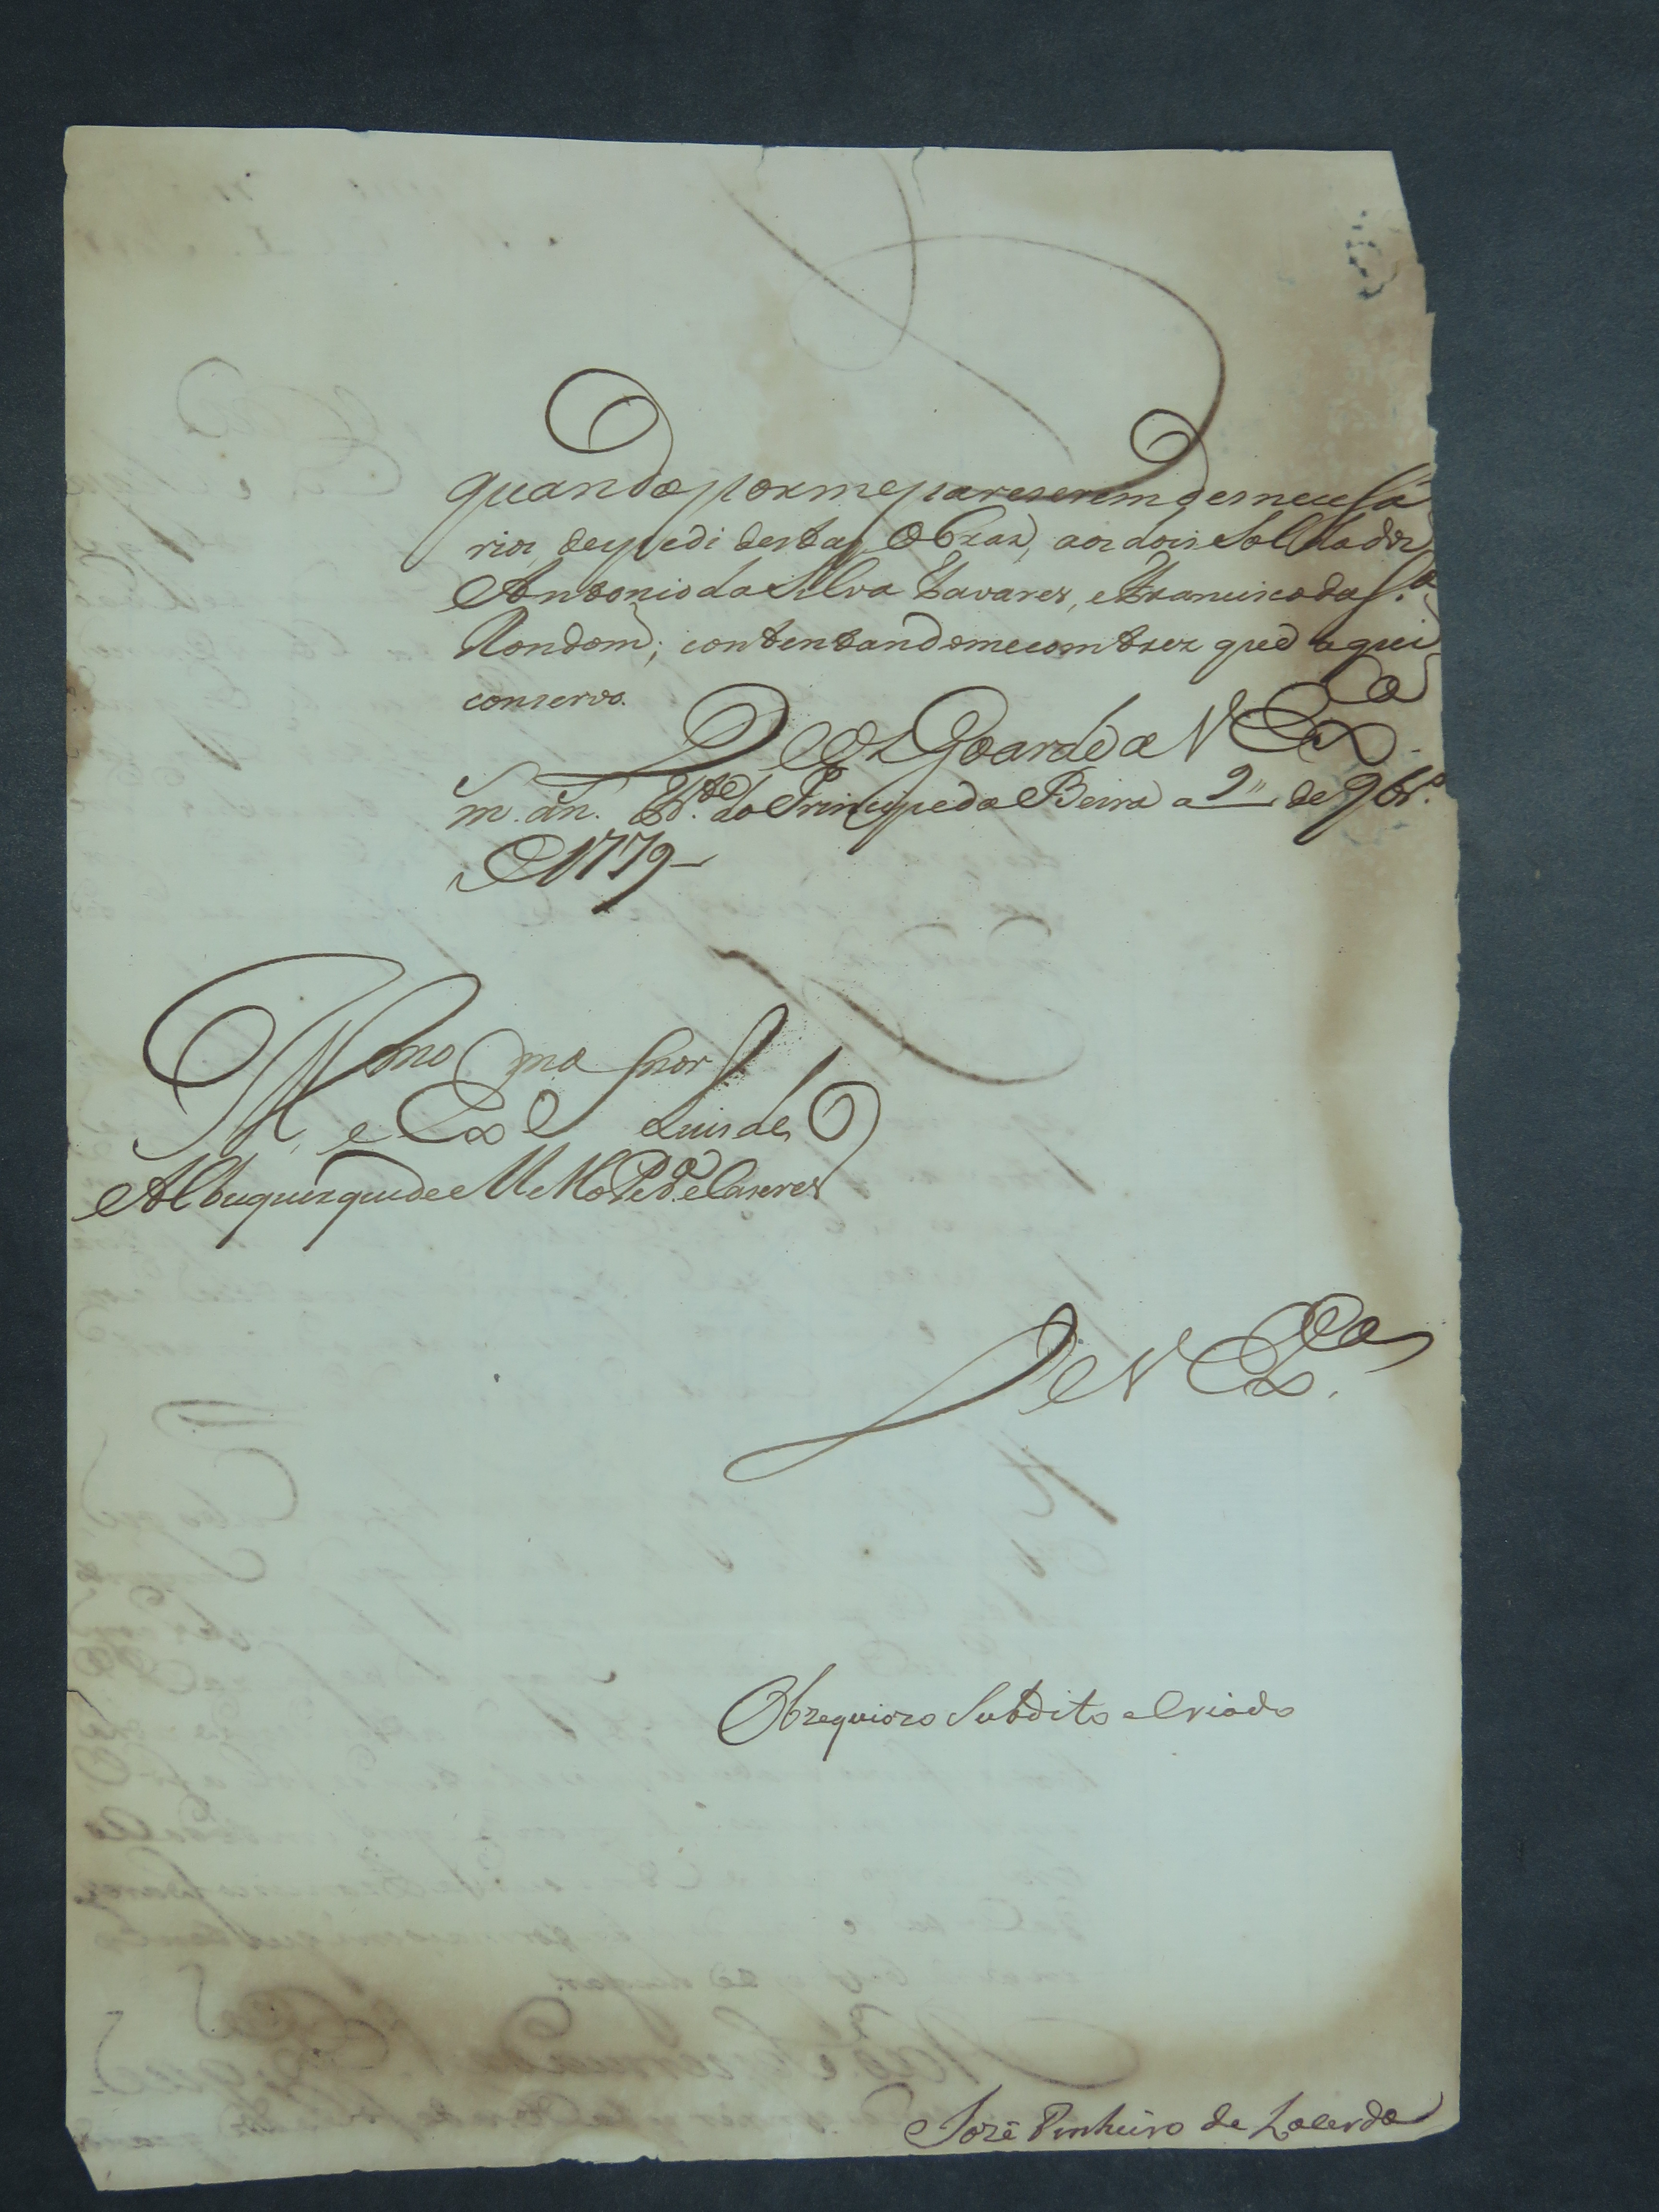 quando por me pareserem desnecessa
rios, despedi destas Obras, aos dois Solldados
Antonio da Silva Tavares, e Francisco da S.ª
Rondom; contentandome com tres que aqui
conservo.
Deos Goarde a V Ex.cia
m. an. Fr.te do Principe da Beira a 2 de 9br.º
de 1779
Ill.mo e Ex.mo Snor Luis de
Albuquerque de M.ello P.ra e Caseres
De V Ex.cia
Obzequiozo Subdito e Criado
Jozê Pinheiro de Lacerda